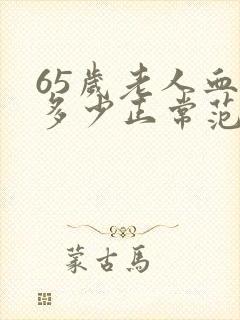 65歲老人血
多少正常范
蒙古馬